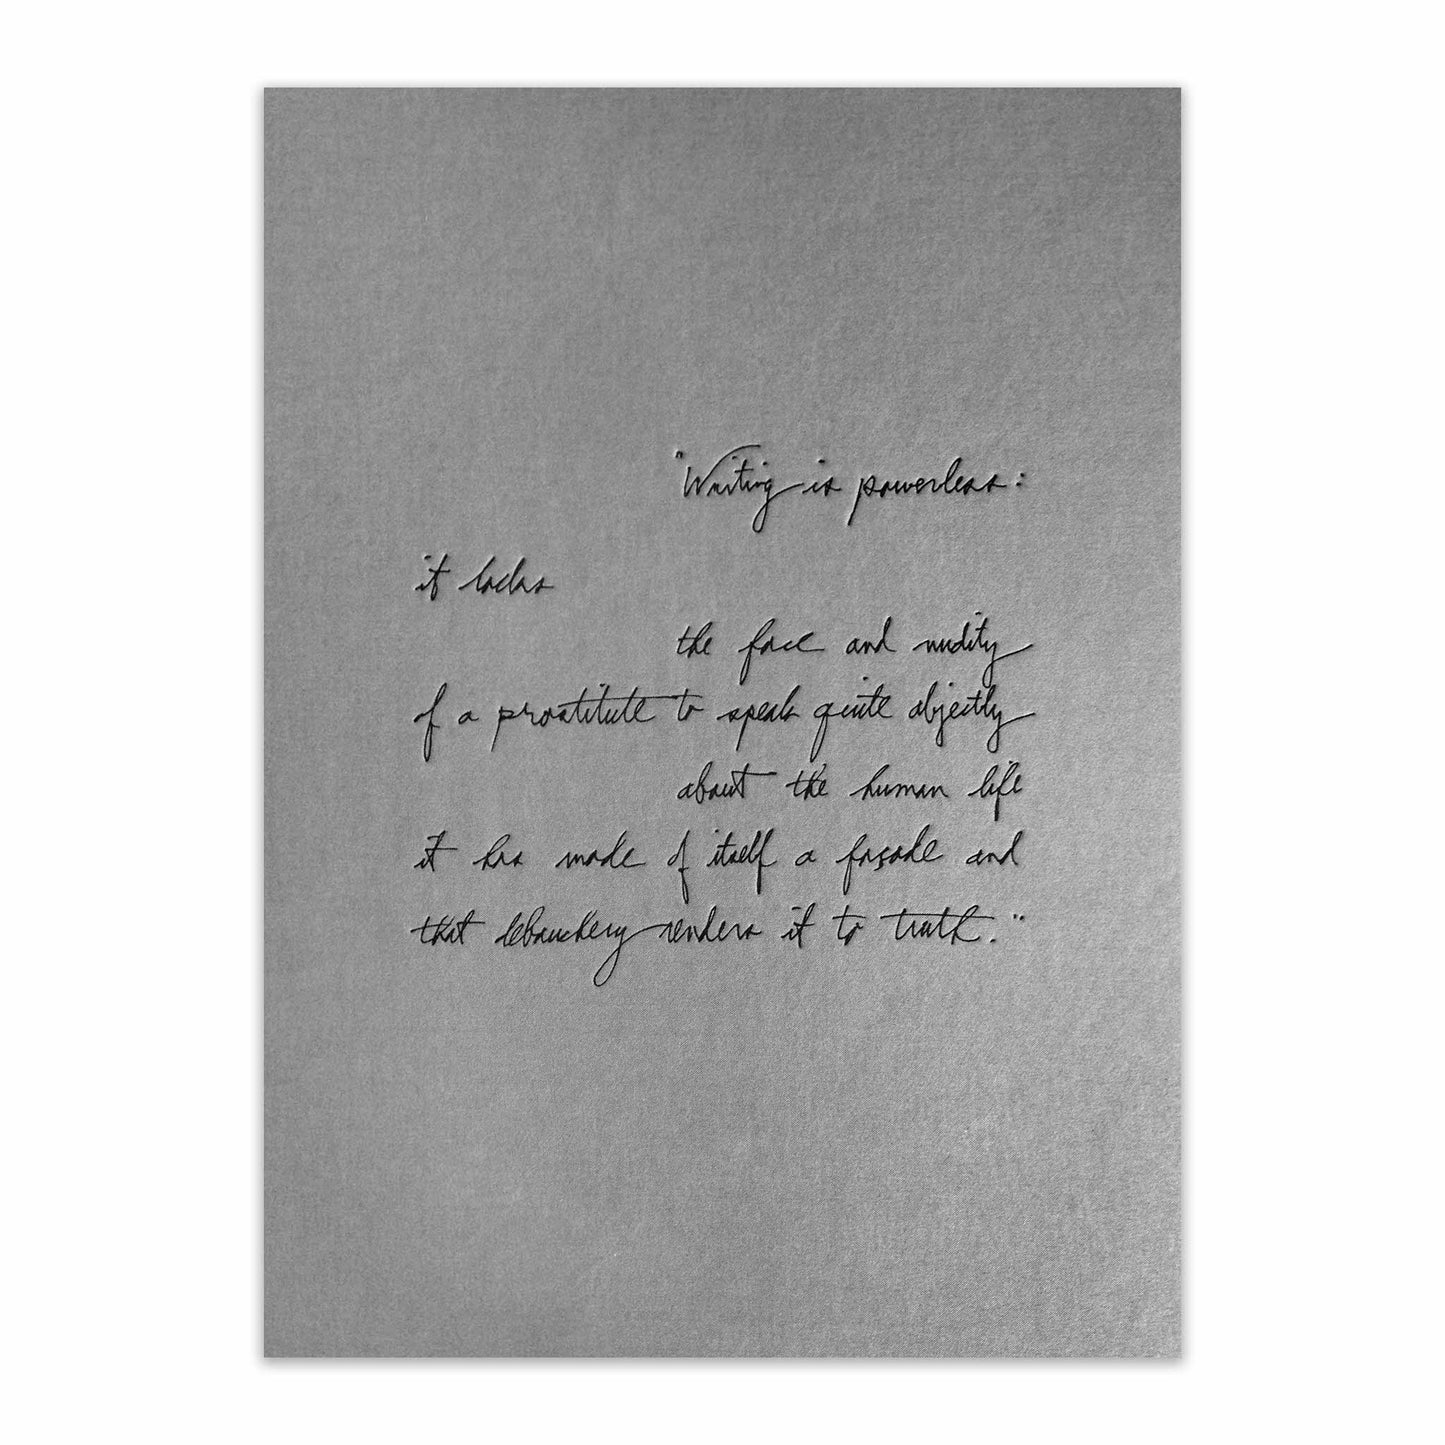 "Writing is powerless:
it lacks
the face and nudity
of a prostitute to speak quite abjectly
about the human life
it has made of itself a façade and
that debauchery renders it to truth."